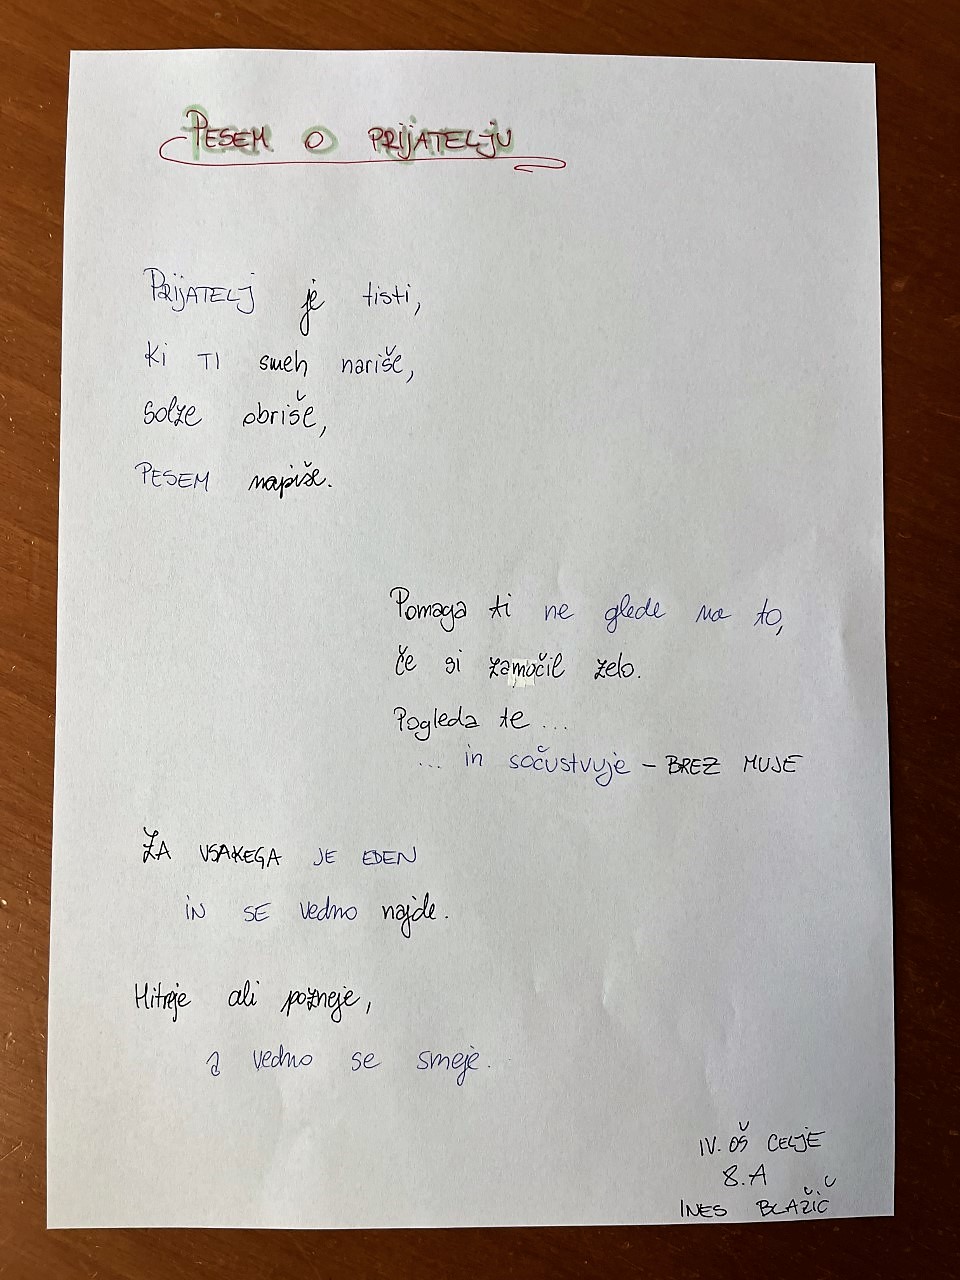 PESEM O PRIJATELJU
PRIJATELJ je tisti,
ki TI smeh nariše,
solze obriše,
PESEM napiše.
Pomaga ti ne glede na to,
če si zamočil zelo.
Pogleda te ...
... in sočustvuje - BREZ MUJE
ZA VSAKEGA JE EDEN
IN SE vedno najde.
Hitreje ali pozneje,
a vedno se smeje.
IV. OŠ CELJE
8. A
INES BLAŽIČ